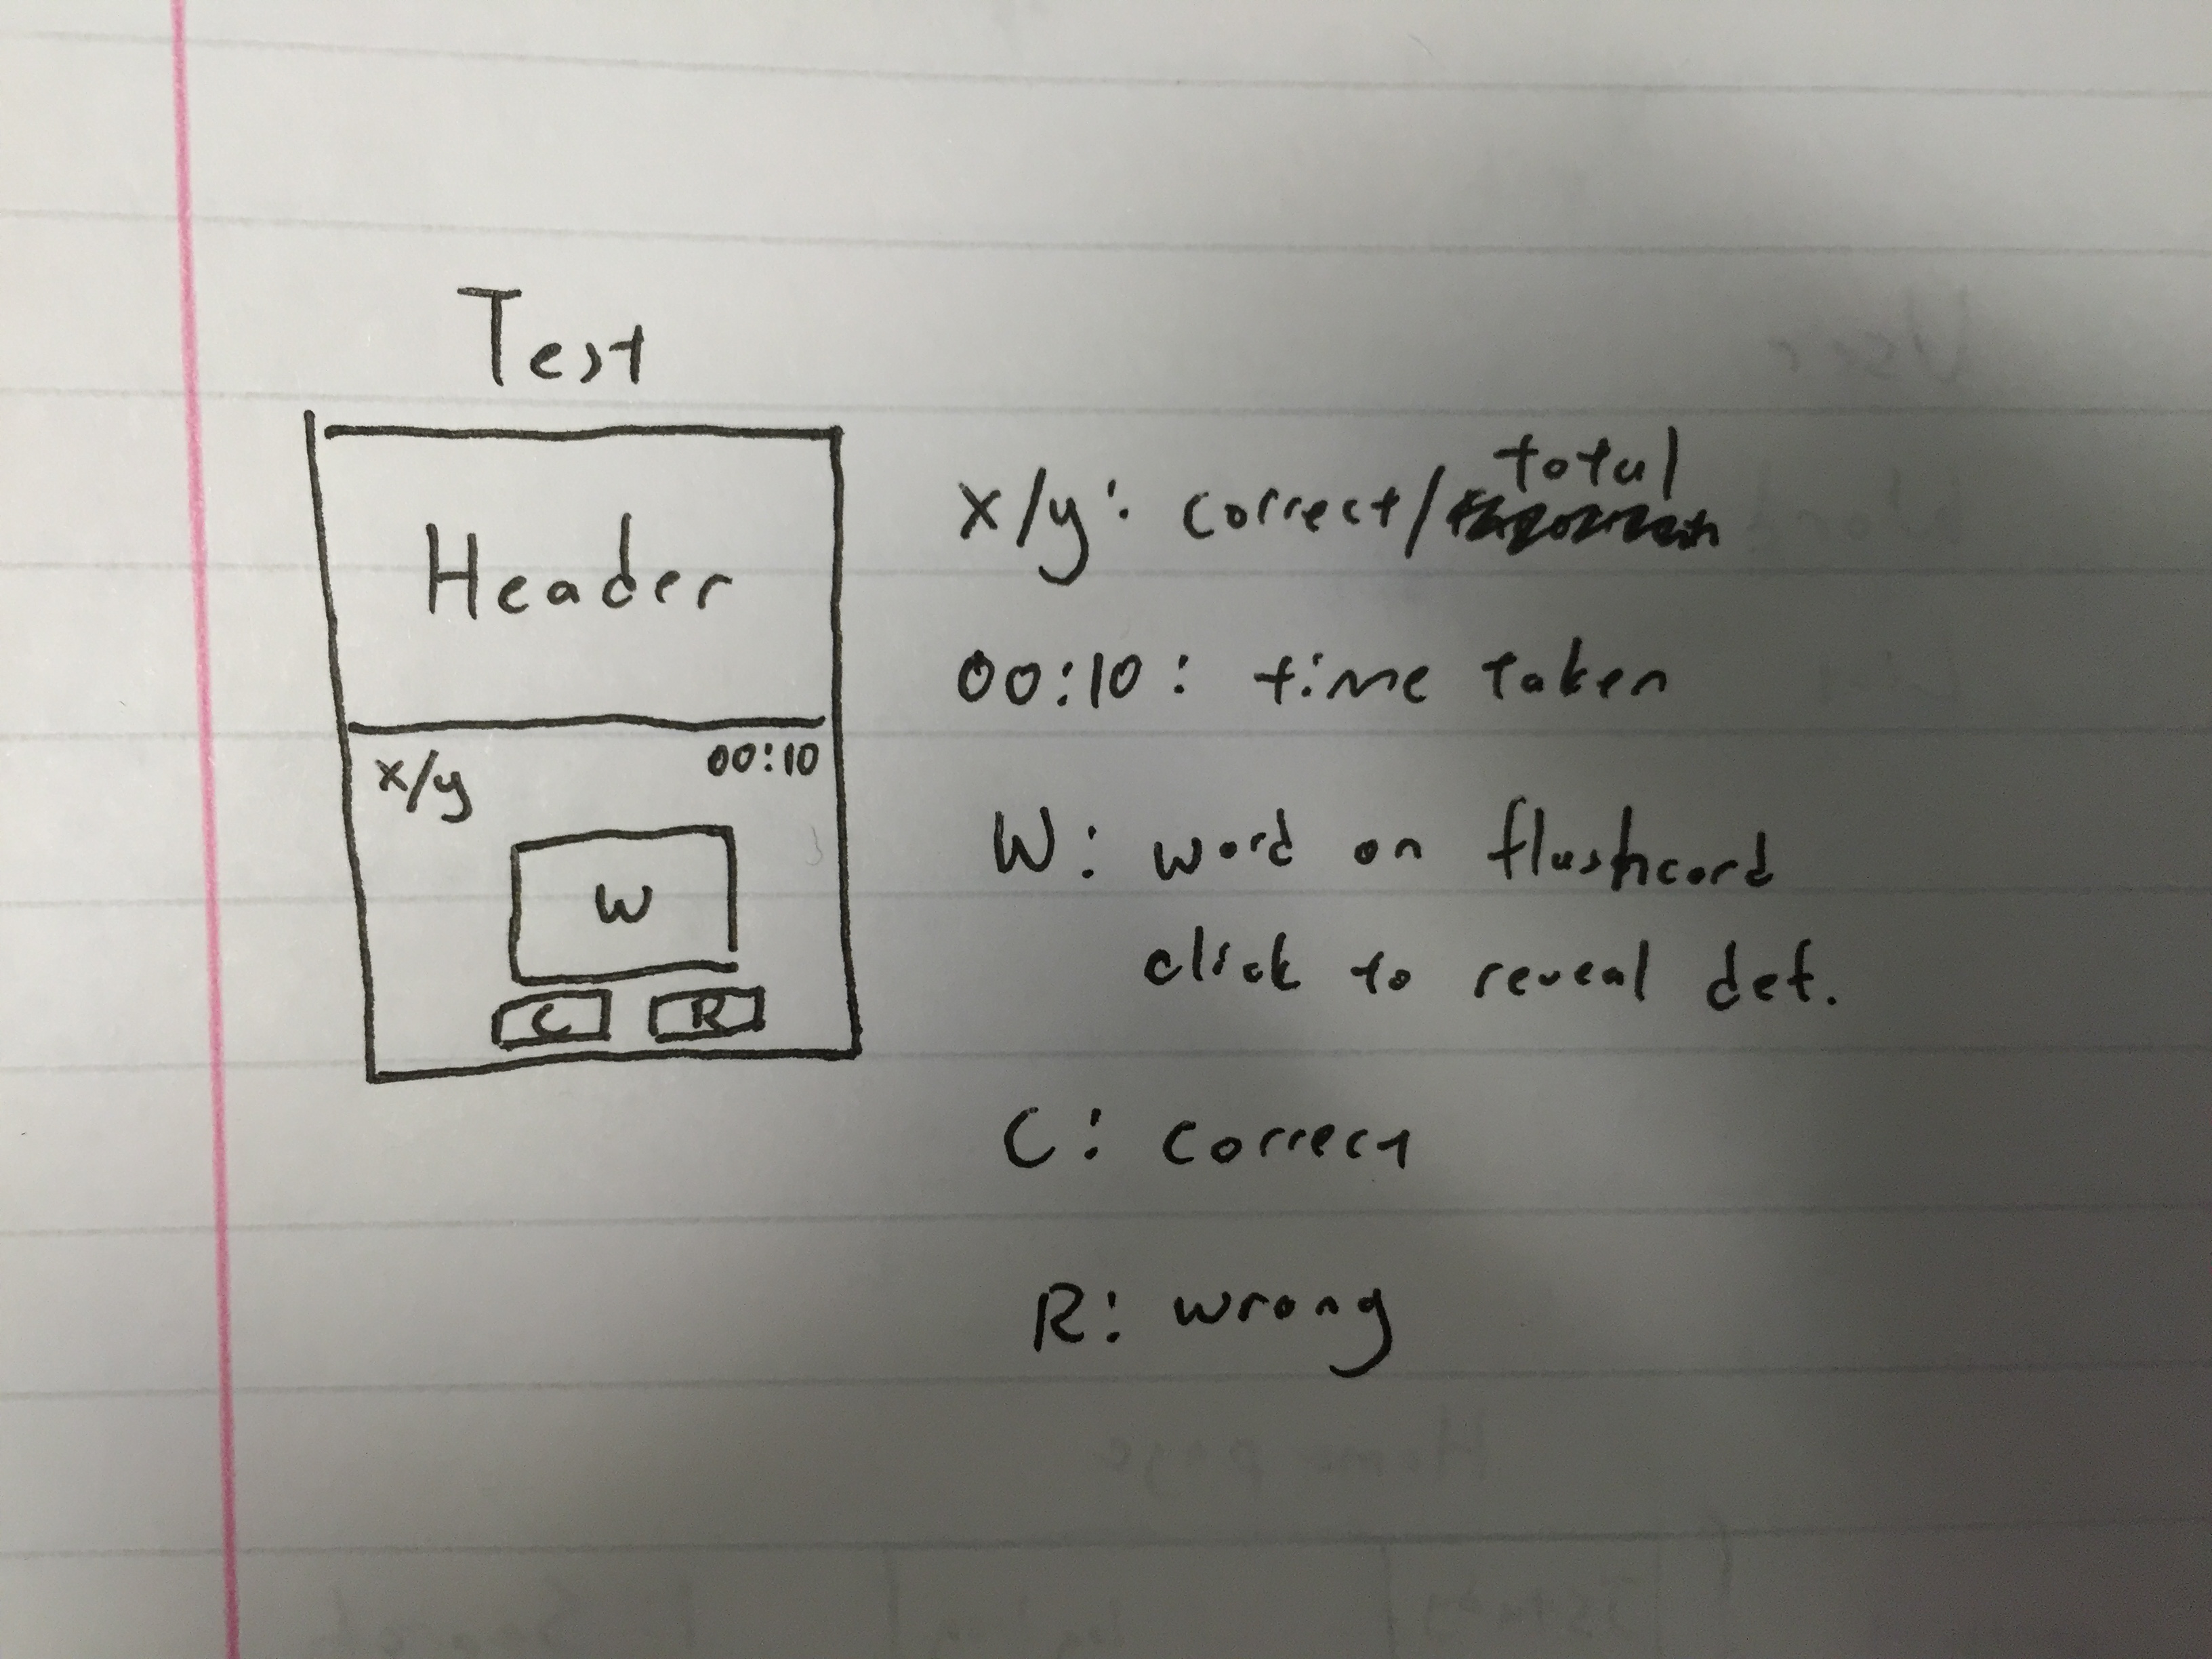 Test
Header
x/y
00:10
W
C
R
x/y: correct/total
00:10: time taken
W: word on flashcard
click to reveal def.
C: correct
R: wrong